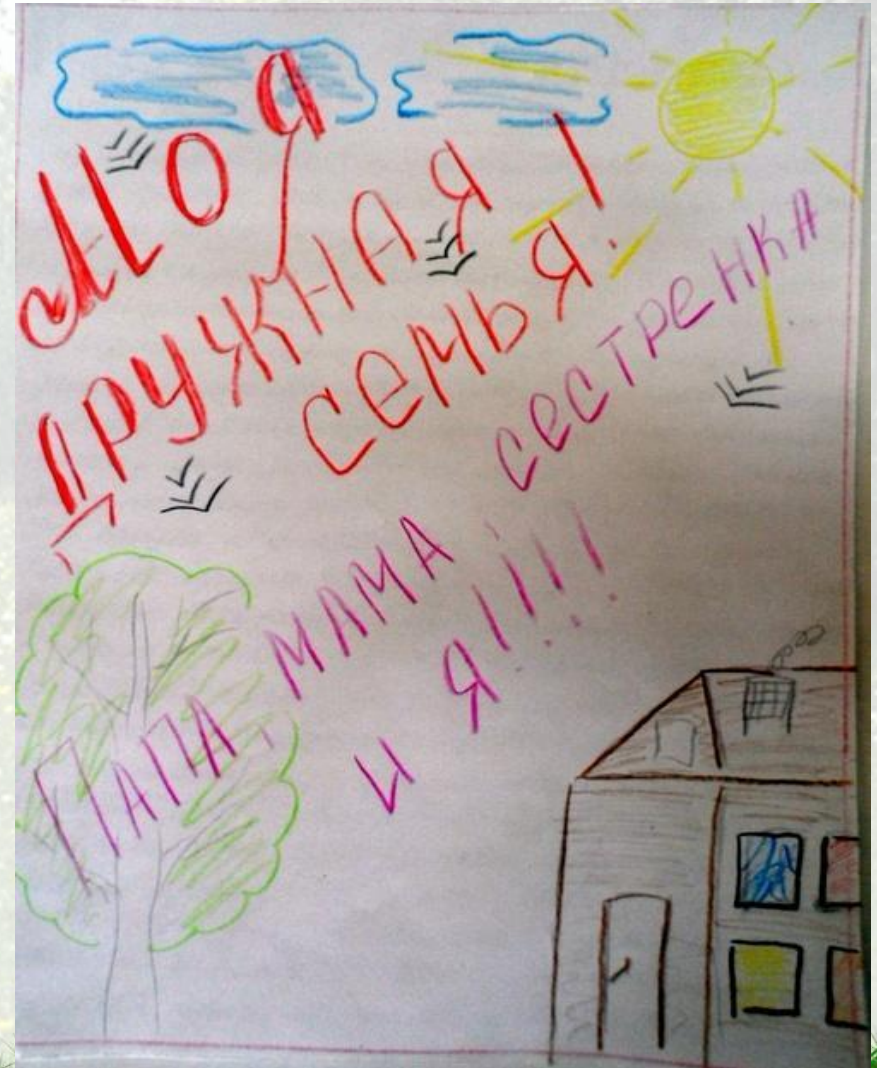 МОЯ
ДРУЖНАЯ
СЕМЬЯ!
ПАПА, МАМА СЕСТРЕНКА
И Я!!!!